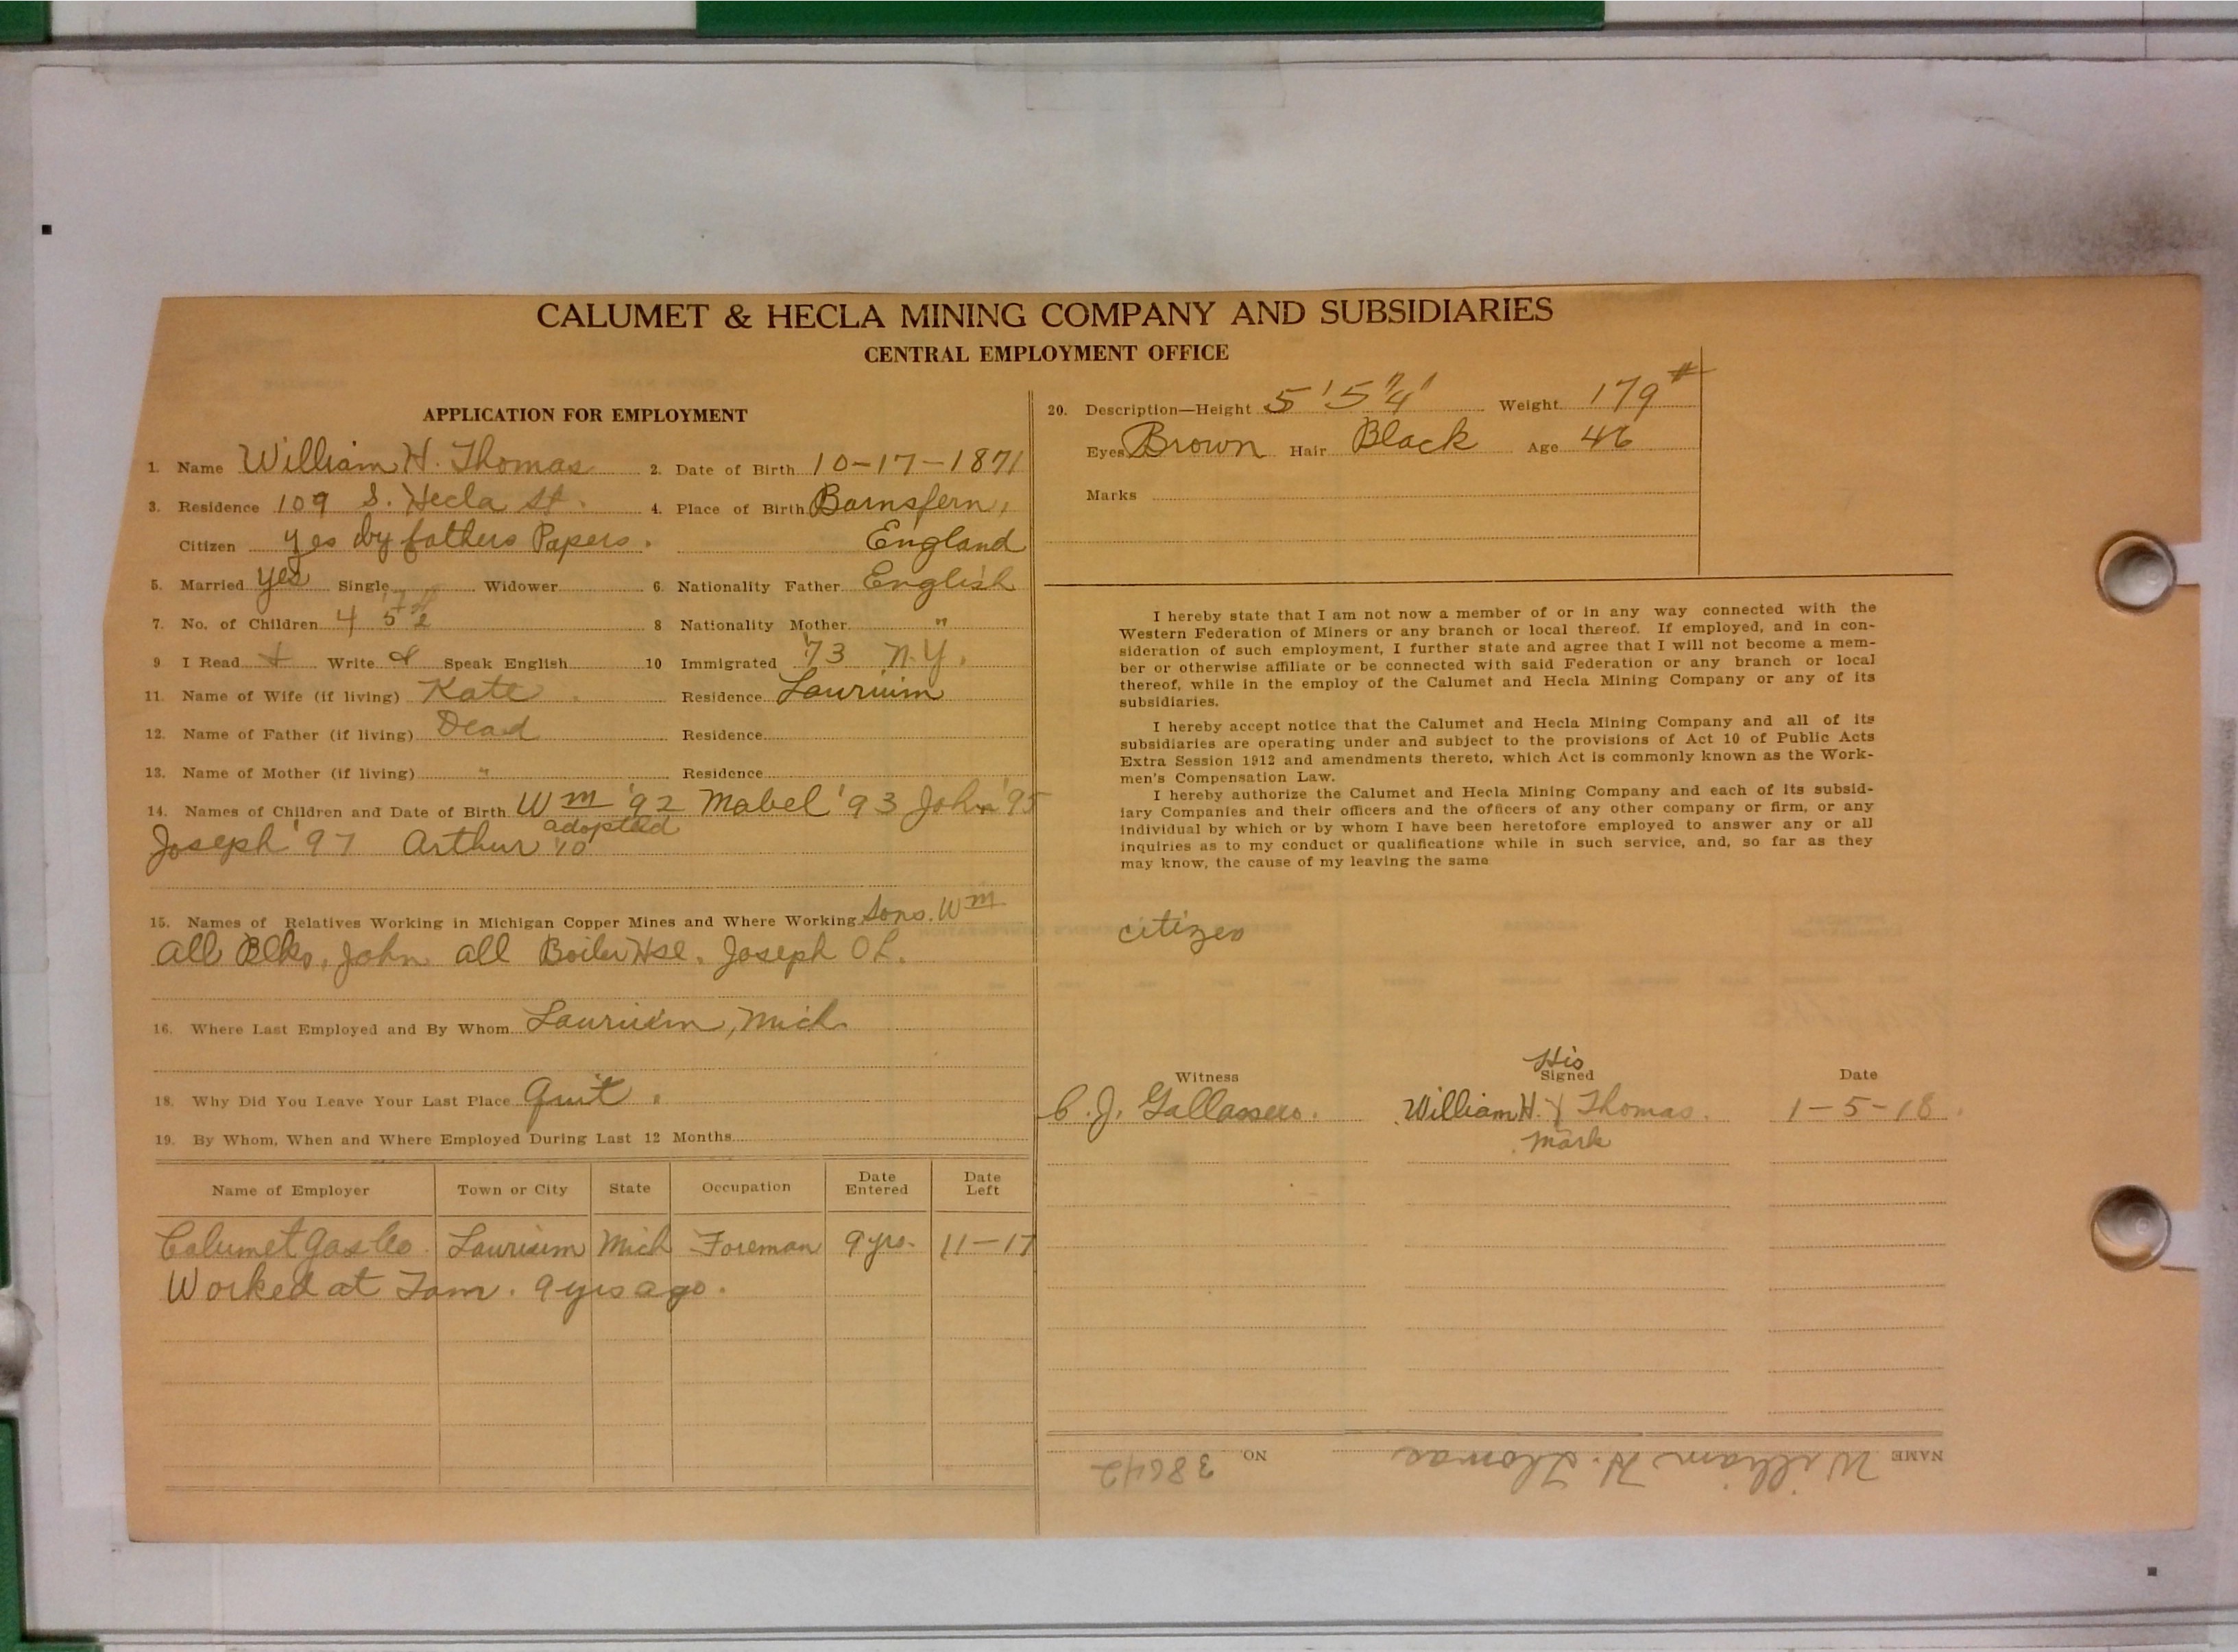 CALUMET & HECLA MINING COMPANY AND SUBSIDIARIES
CENTRAL EMPLOYMENT OFFICE
APPLICATION FOR EMPLOYMENT
1. Name William H. Thomas 2. Date of Birth 10-17-1871
3. Residence 109 S. Hecla St. 4. Place of Birth Barnsfern,
Citizen yes by fathers Papers. England
5. Married yes Single Widower 6. Nationality Father English
7. No. of Children 4 8 Nationality Mother "
9. I Read + Write & Speak English 10 Immigrated '73 N.Y.
11. Name of Wife (if living) Kate Residence Laurium
12. Name of Father (if living) Dead Residence
13. Name of Mother (if living) " Residence
14. Names of Children and Date of Birth Wm '92 Mabel '93 John '95
Joseph '97 Arthur adopted '10
15. Names of Relatives Working in Michigan Copper Mines and Where Working Sons. Wm
all Blks, John all Boiler Hse. Joseph O L.
16. Where Last Employed and By Whom Laurium, Mich
18. Why Did You Leave Your Last Place Quit.
19. By Whom, When and Where Employed During Last 12 Months
Name of Employer Town or City State Occupation Date Entered Date Left
Calumet Gas Co. Laurium Mich Foreman 9 yrs. 11-17
Worked at Tam. 9 yrs ago.
20. Description—Height 5' 5 3/4" Weight 179#
Eyes Brown Hair Black Age 46
Marks
I hereby state that I am not now a member of or in any way connected with the
Western Federation of Miners or any branch or local thereof. If employed, and in con-
sideration of such employment, I further state and agree that I will not become a mem-
ber or otherwise affiliate or be connected with said Federation or any branch or local
thereof, while in the employ of the Calumet and Hecla Mining Company or any of its
subsidiaries.
I hereby accept notice that the Calumet and Hecla Mining Company and all of its
subsidiaries are operating under and subject to the provisions of Act 10 of Public Acts
Extra Session 1912 and amendments thereto, which Act is commonly known as the Work-
men's Compensation Law.
I hereby authorize the Calumet and Hecla Mining Company and each of its subsid-
iary Companies and their officers and the officers of any other company or firm, or any
individual by which or by whom I have been heretofore employed to answer any or all
inquiries as to my conduct or qualifications while in such service, and, so far as they
may know, the cause of my leaving the same
citizen
His
Witness Signed Date
C. J. Gallassero. William H. X Thomas. 1-5-18.
mark
NAME William H. Thomas NO 38642